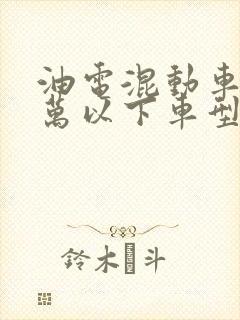 油電混動車
萬以下車型
鈴木 斗